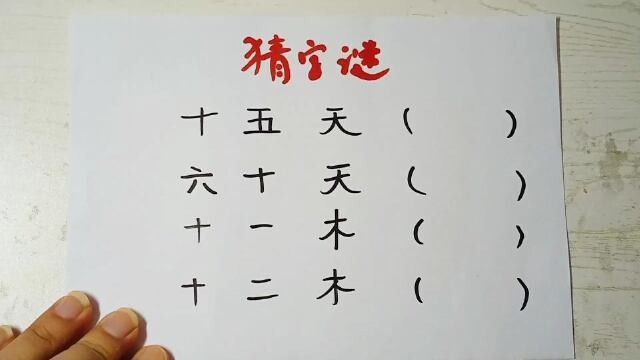 猜字谜
十五天( )
六十天( )
十一木( )
十二木( )